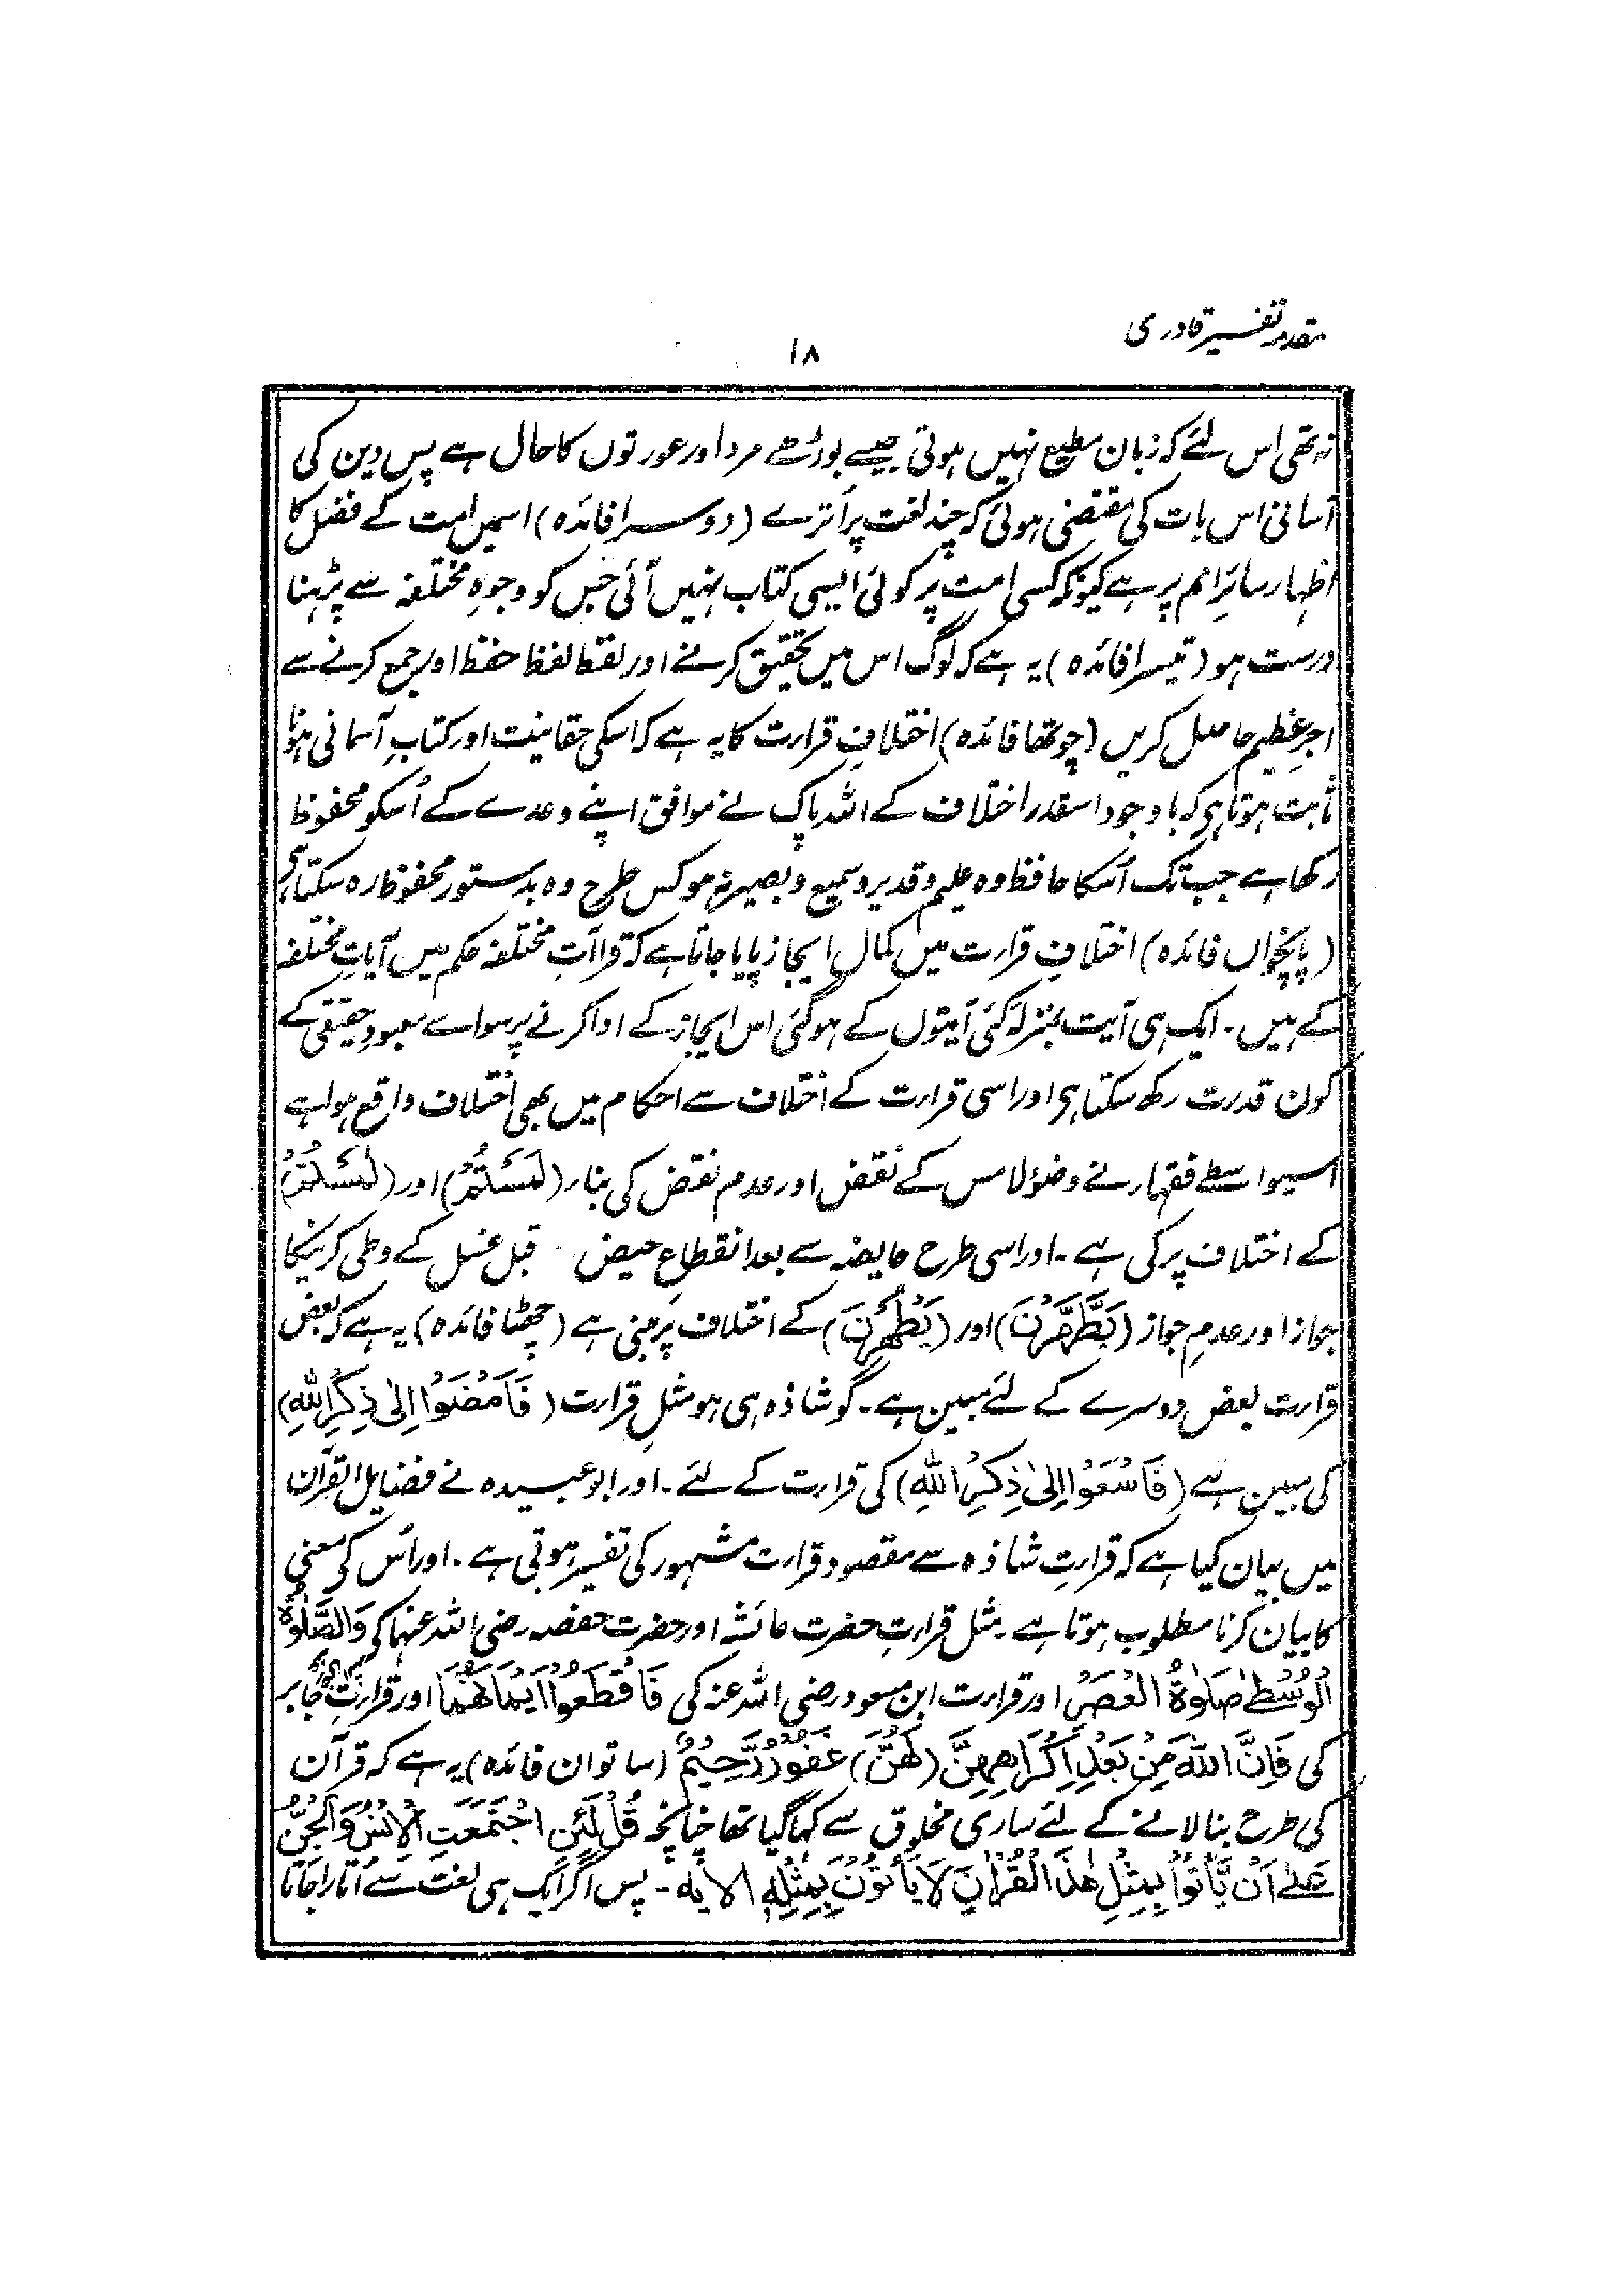 مقدمہ تفسیر قادری
۱۸
نہ تھی اس لئے کہ زبان مطیع نہیں ہوتی جیسے بوڑھے مرد اور عورتوں کا حال ہے پس دین کی
آسانی اس بات کی مقتضی ہوئی کہ چند لغت پر اُترے (دوسرا فائدہ) اسمیں امت کے فضل کا
اظہار سائرِ امم پر ہے کیونکہ کسی امت پر کوئی ایسی کتاب نہیں آئی جس کو وجوہِ مختلفہ سے پڑہنا
درست ہو (تیسرا فائدہ) یہ ہے کہ لوگ اس میں تحقیق کرنے اور لفظ لفظ حفظ اور جمع کرنے سے
اجرِ عظیم حاصل کریں (چوتھا فائدہ) اختلافِ قرارت کا یہ ہے کہ اسکی حقانیت اور کتابِ آسمانی ہونا
ثابت ہوتا ہی کہ باوجود اسقدر اختلاف کے اللہ پاک نے موافق اپنے وعدے کے اُسکو محفوظ
رکھا ہے جب تک اُسکا حافظ وہ علیم و قدیر و سمیع و بصیر نہو کس طرح وہ بدستور محفوظ رہ سکتا ہی
(پانچواں فائدہ) اختلافِ قرارت میں کمال ایجاز پایا جاتا ہے کہ قراآتِ مختلفہ حکم میں آیاتِ مختلفہ
کے ہیں۔ ایک ہی آیت بمنزلۂ کئی آیتوں کے ہوگئی اس ایجاز کے ادا کرنے پر سواے معبودِ حقیقی کے
کون قدرت رکھ سکتا ہی اور اسی قرارت کے اختلاف سے احکام میں بھی اختلاف واقع ہوا ہے
اسیواسطے فقہار نے وضوُ لامس کے نقض اور عدم نقض کی بنار (لَمَسْتُمْ) اور (لٰمَسْتُمْ)
کے اختلاف پر کی ہے۔ اور اسی طرح حایضہ سے بعد انقطاعِ حیض قبل غسل کے وطی کرنیکا
جواز اور عدمِ جواز (یَطَّهَّرْنَ) اور (یَطْهُرْنَ) کے اختلاف پر مبنی ہے (چھٹا فائدہ) یہ ہے کہ بعض
قرارت بعض دوسرے کے لئے مبین ہے۔ گو شاذہ ہی ہو مثلِ قرارت (فَامْضَوْا اِلٰی ذِکْرِ اللهِ)
کی مبین ہے (فَاسْعَوْا اِلیٰ ذِکْرِ اللهِ) کی قرارت کے لئے۔ اور ابو عبیدہ نے فضایل القرآن
میں بیان کیا ہے کہ قرارتِ شاذہ سے مقصود قرارت مشہور کی تفسیر ہوتی ہے۔ اور اُس کی معنی
کا بیان کرنا مطلوب ہوتا ہے۔ مثل قرارتِ حضرت عائشہ اور حضرت حفصہ رضی اللہ عنہما کی وَالصَّلٰوةُ
الْوُسْطٰ صَلٰوةُ الْعَصْرِ اور قرارت ابن مسعود رضی اللہ عنہ کی فَاقْطَعُوْا اَیْمَانَهُمَا اور قرارتِ جابر
کی فَاِنَّ اللهَ مِنْ بَعْدِ اِکْرَاهِهِنَّ (لَهُنَّ) غَفُوْرٌ رَّحِیْمٌ (ساتواں فائدہ) یہ ہے کہ قرآن
کی طرح بنا لانے کے لئے ساری مخلوق سے کہا گیا تھا چنانچہ قُلْ لَئِنِ اجْتَمَعَتِ الْاِنْسُ وَالْجِنُّ
عَلٰی اَنْ یَّاْتُوْا بِمِثْلِ هٰذَا الْقُرْاٰنِ لَا یَاْتُوْنَ بِمِثْلِهٖ الایہ۔ پس اگر ایک ہی لغت سے اُتارا جاتا